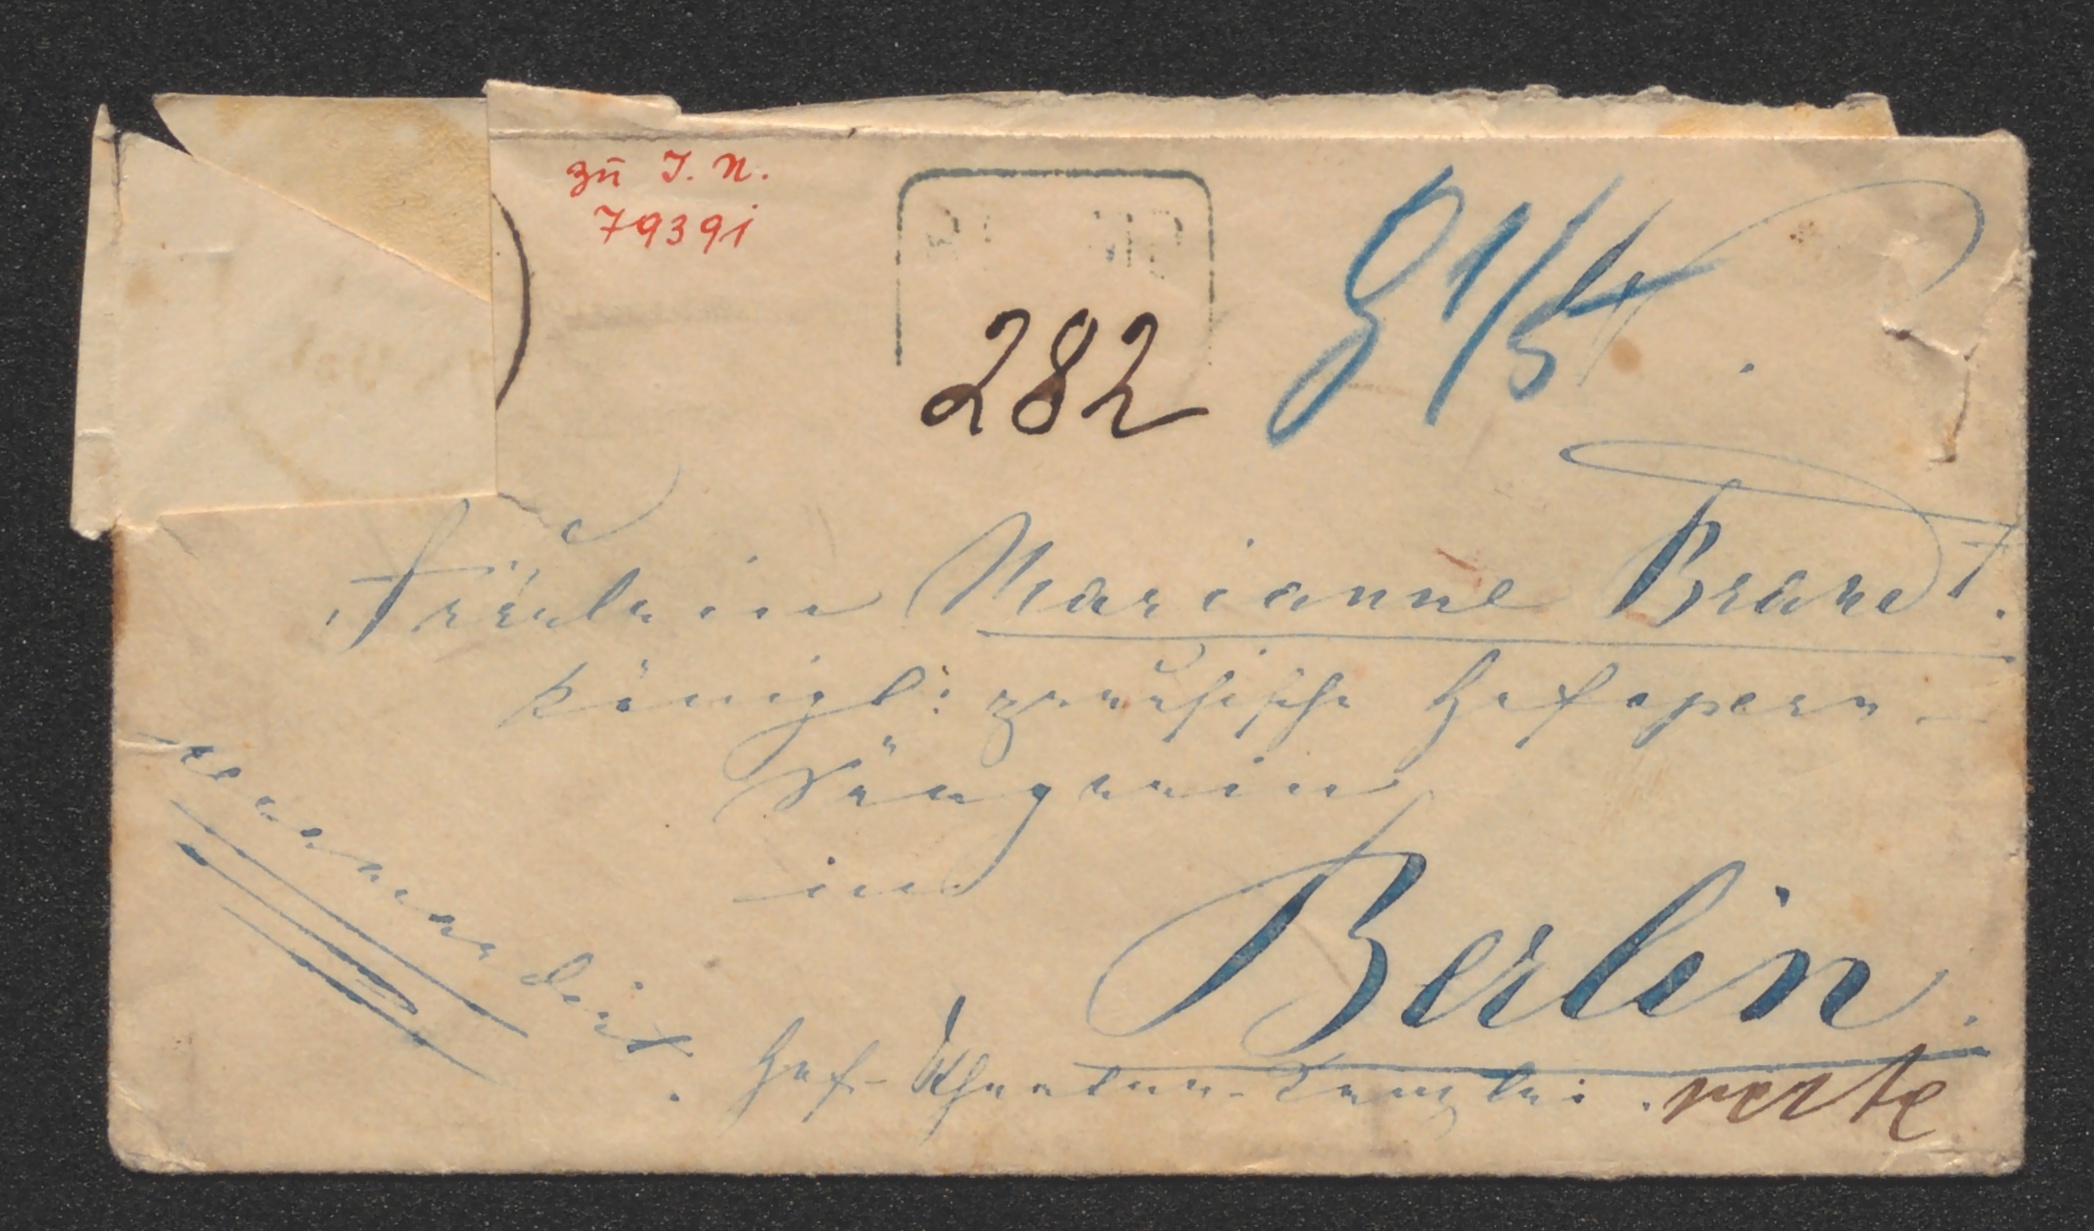 zu I. N.
79391
282
9 1/5 4
Fräulein Marianne Brandt.
königl: preußische Hofopern-
Sängerin
in
Berlin.
recommandirt.
Hof-Theater-Canzlei.
verte